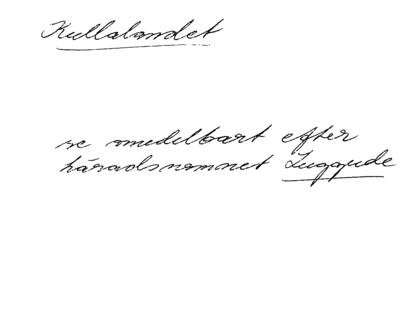 Kullalandet
se omedelbart efter
häradsnamnet Luggude